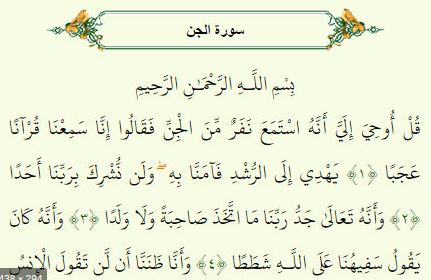 سورة الجن
بِسْمِ اللَّـهِ الرَّحْمَـٰنِ الرَّحِيمِ
قُلْ أُوحِيَ إِلَيَّ أَنَّهُ اسْتَمَعَ نَفَرٌ مِّنَ الْجِنِّ فَقَالُوا إِنَّا سَمِعْنَا قُرْآنًا
عَجَبًا ﴿١﴾ يَهْدِي إِلَى الرُّشْدِ فَآمَنَّا بِهِ ۖ وَلَن نُّشْرِكَ بِرَبِّنَا أَحَدًا
﴿٢﴾ وَأَنَّهُ تَعَالَىٰ جَدُّ رَبِّنَا مَا اتَّخَذَ صَاحِبَةً وَلَا وَلَدًا ﴿٣﴾ وَأَنَّهُ كَانَ
يَقُولُ سَفِيهُنَا عَلَى اللَّـهِ شَطَطًا ﴿٤﴾ وَأَنَّا ظَنَنَّا أَن لَّن تَقُولَ الْإِنسُ
438 x 294